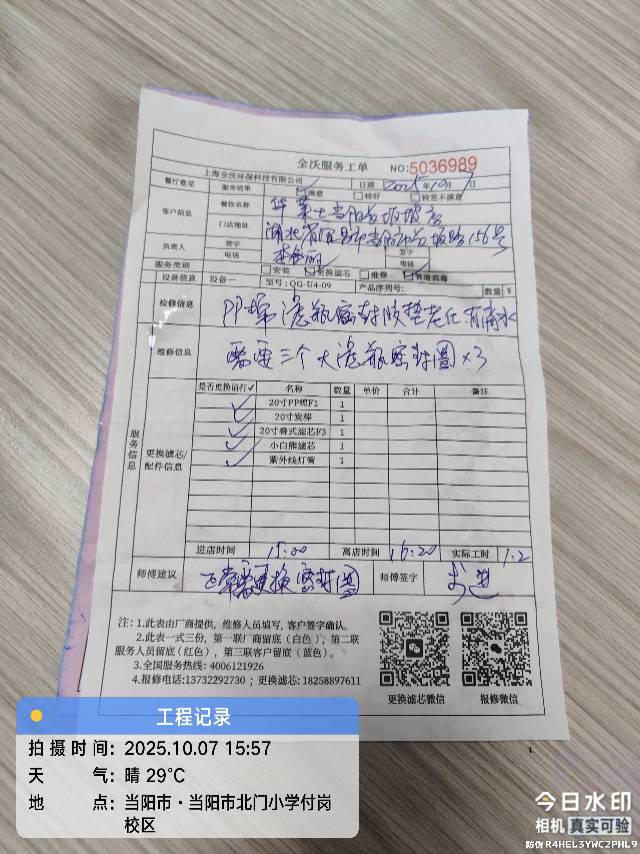 全沃服务工单
NO:5036989
上海全沃环保科技有限公司
日期 2025年10月7日
餐厅意见 服务结果 满意 较好 较差不满意
客户信息 餐饮名称
门店地址 湖北省宜昌市当阳市 坂路156号
负责人 签字 签字
电话 电话
服务类别 安装 更换滤芯 维修 管道消毒
设备信息 设备一 型号:QG-U4-09 产品序列号: 数量
检修信息 PP棉滤瓶密封胶垫老化有滴水
维修信息 需要三个大滤瓶密封圈x3
服务信息 更换滤芯/配件信息
是否更换请打✓ 名称 数量 单价 合计 备注
✓ 20寸PP棉F1 1
✓ 20寸炭棒 1
✓ 20寸叠式滤芯F3 1
✓ 小白熊滤芯 1
✓ 紫外线灯管 1
进店时间 15:00 离店时间 16:20 实际工时 1.2
师傅建议 更换密封圈 师傅签字
注:1.此表由厂商提供,维修人员填写,客户签字确认。
2.此表一式三份,第一联厂商留底(白色),第二联
服务人员留底(红色),第三联客户留底(蓝色)。
3.全国服务热线: 4006121926
4.报修电话:13732292730 ; 更换滤芯: 18258897611
更换滤芯微信 报修微信
工程记录
拍摄时间: 2025.10.07 15:57
天 气: 晴 29℃
地 点: 当阳市·当阳市北门小学付岗
校区
今日水印
相机 真实可验
防伪 R4HEL3YWC2PHL9